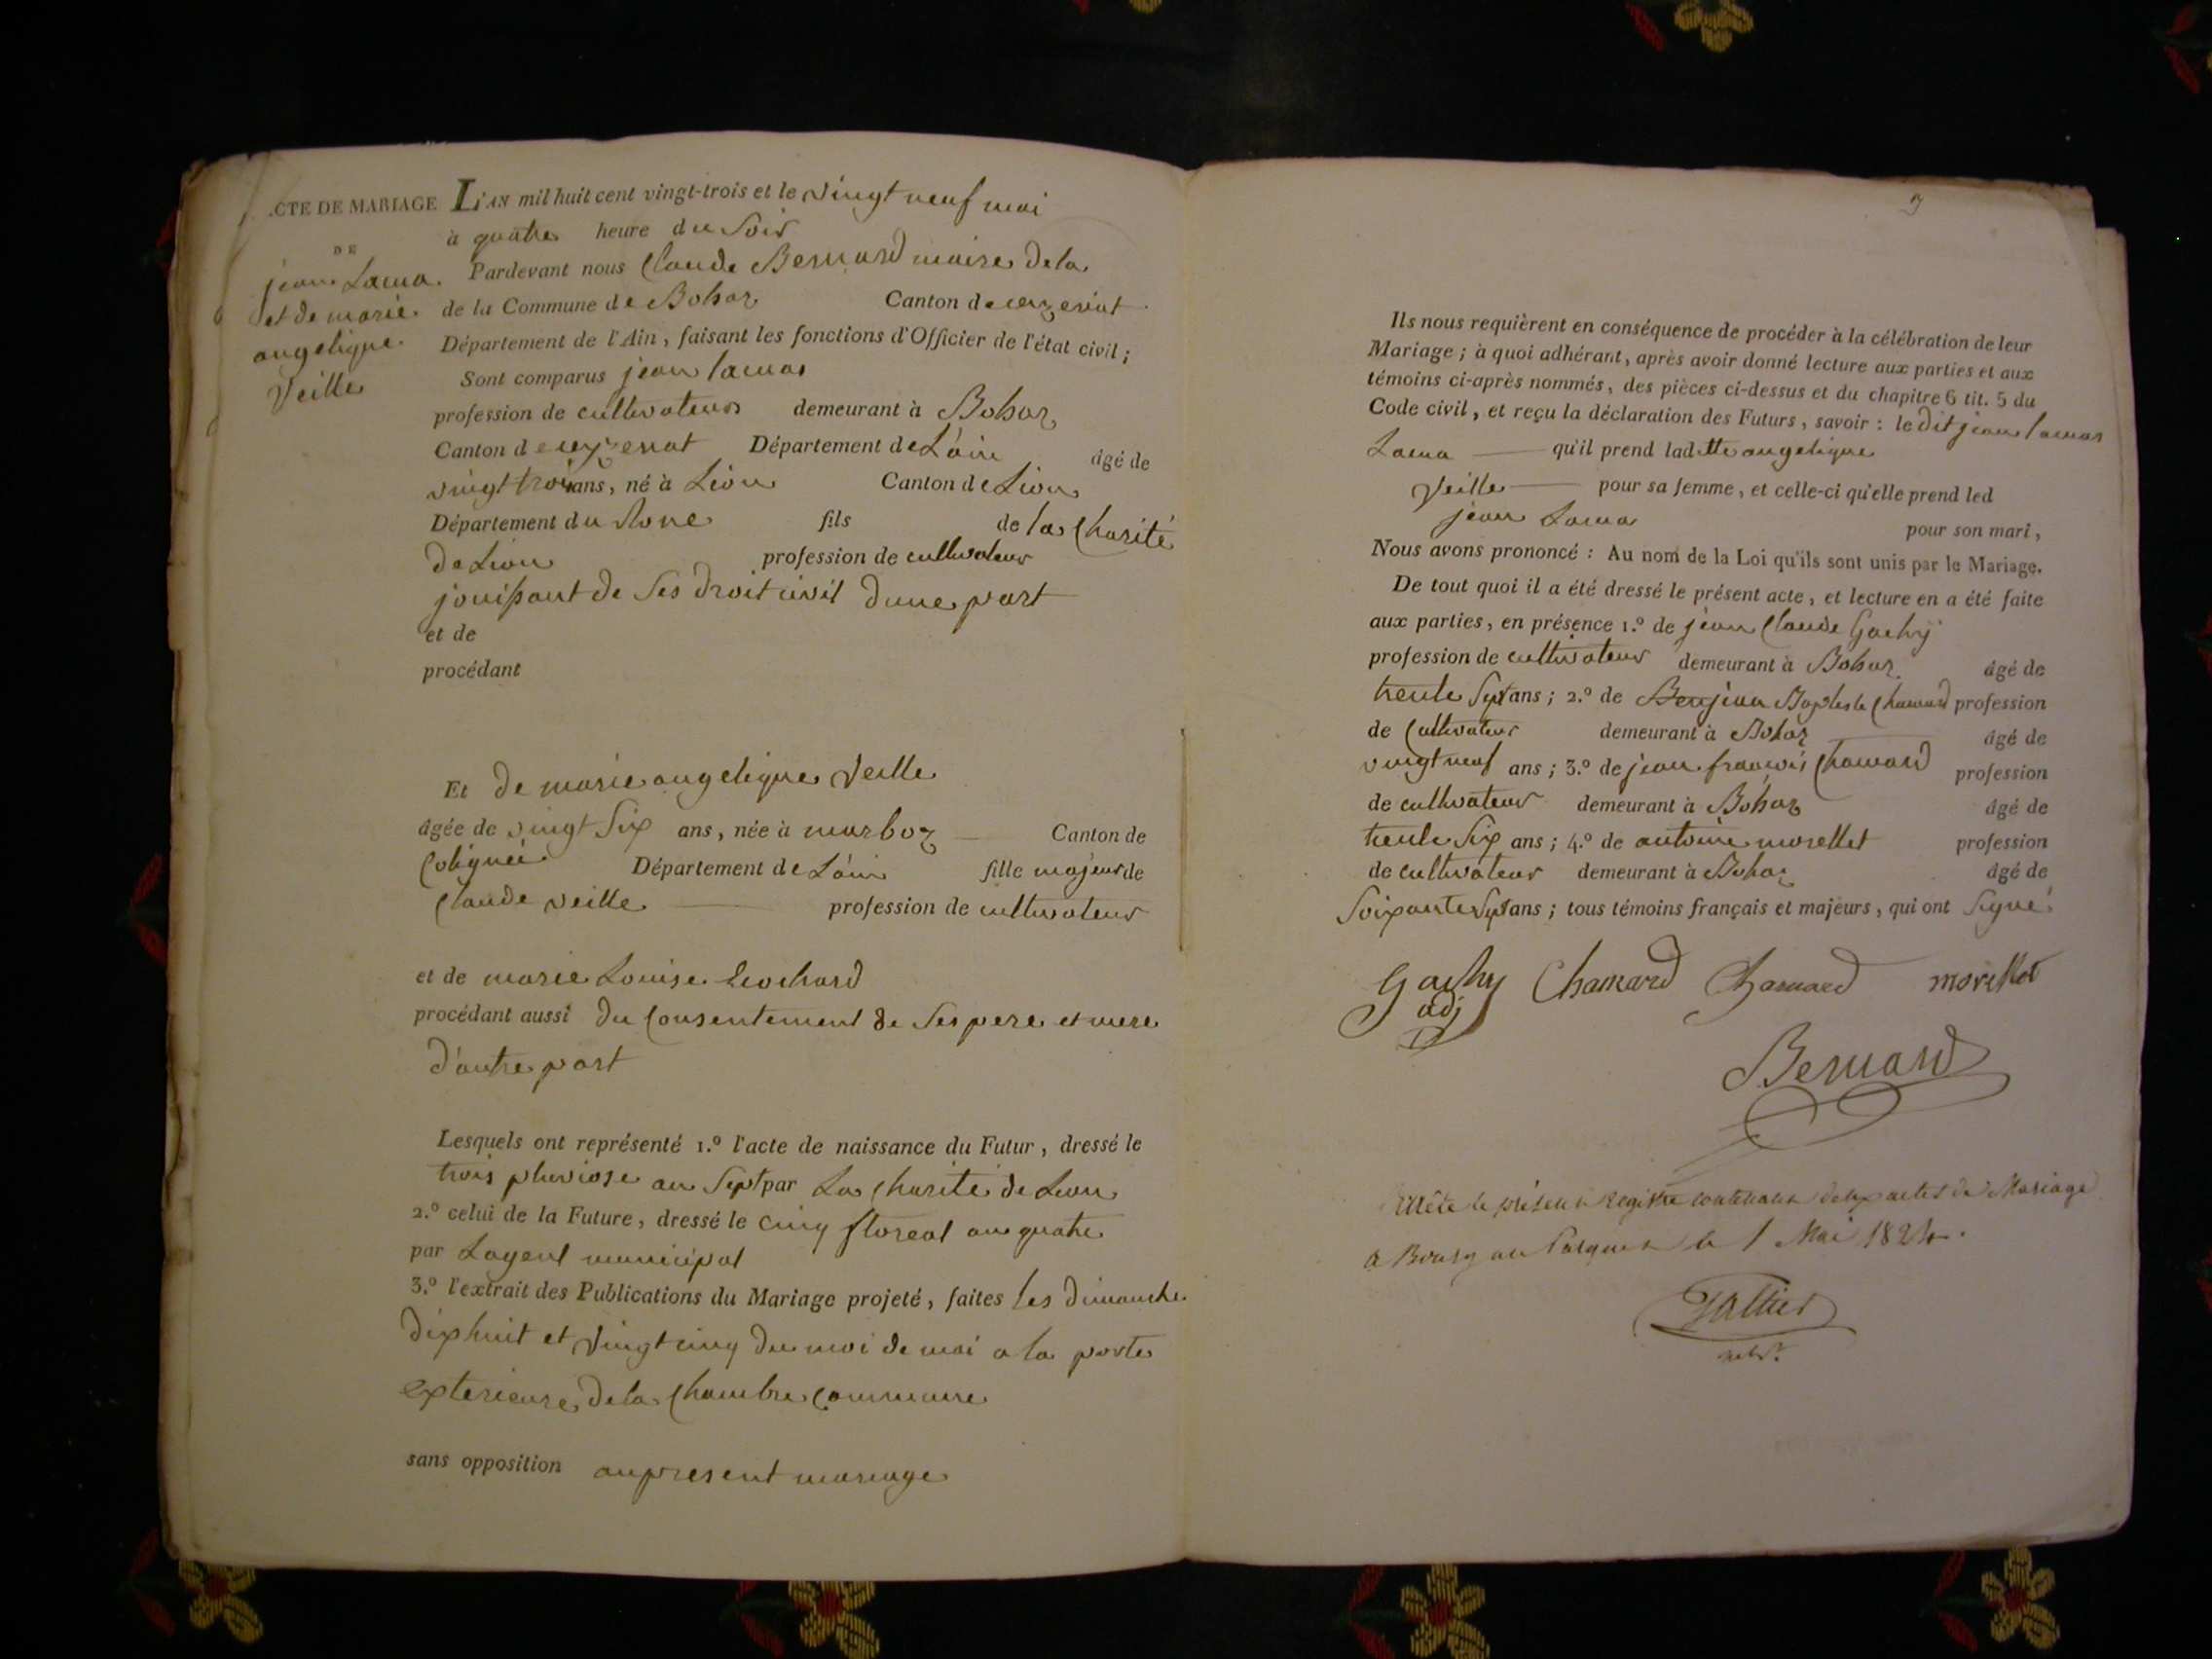 ACTE DE MARIAGE
DE
jean Lama
et de marie
angelique
Veille
L'AN mil huit cent vingt-trois et le vingt neuf mai
à quatre heure du soir
Pardevant nous Claude Bernard maire de la
de la Commune de Bohaz Canton de ceyzeriat
Département de l'Ain, faisant les fonctions d'Officier de l'état civil;
Sont comparus jean lama
profession de cultivateur demeurant à Bohaz
Canton de ceyzeriat Département de L'ain âgé de
vingt trois ans, né à Lion Canton de Lion
Département du Rone fils de la Charité
de Lion profession de cultivateur
jouissant de ses droit civil d'une part
et de
procédant
Et de marie angelique Veille
âgée de vingt six ans, née à marboz Canton de
Département de L'ain fille majeur de
Claude veille profession de cultivateur
et de marie Louise
procédant aussi du Consentement de ses pere et mere
d'autre part
Lesquels ont représenté 1.º l'acte de naissance du Futur, dressé le
trois pluviose an sept par La Charité de Lion
2.º celui de la Future, dressé le cinq floreal an quatre
par Lagent municipal
3.º l'extrait des Publications du Mariage projeté, faites les dimanche
dixhuit et vingt cinq du moi de mai a la porte
exterieure de la Chambre Commune
sans opposition au present mariage
Ils nous requièrent en conséquence de procéder à la célébration de leur
Mariage; à quoi adhérant, après avoir donné lecture aux parties et aux
témoins ci-après nommés, des pièces ci-dessus et du chapitre 6 tit. 5 du
Code civil, et reçu la déclaration des Futurs, savoir: le dit jean lama
Lama qu'il prend ladtte angelique
Veille pour sa femme, et celle-ci qu'elle prend led
jean Lama pour son mari,
Nous avons prononcé: Au nom de la Loi qu'ils sont unis par le Mariage.
De tout quoi il a été dressé le présent acte, et lecture en a été faite
aux parties, en présence 1.º de jean Claude Gachy
profession de cultivateur demeurant à Bohaz âgé de
trente sept ans; 2.º de jean Baptiste Chanard profession
de Cultivateur demeurant à Bohaz âgé de
vingt neuf ans; 3.º de jean francois Chanard profession
de cultivateur demeurant à Bohaz âgé de
trente six ans; 4.º de antoine morellet profession
de cultivateur demeurant à Bohaz âgé de
soixante sept ans; tous témoins français et majeurs, qui ont signé
Gachy Chanard Chanard morellet
adj
Bernard
Arrêté le présent registre contenant deux actes de Mariage
a Bourg au Parquet le 1 Mai 1824.